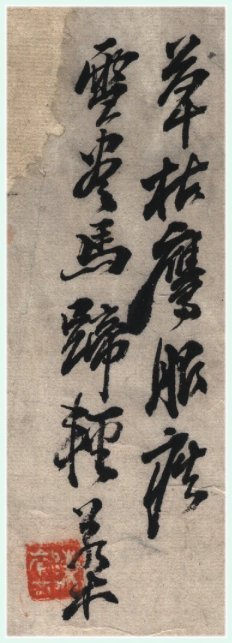 草枯鷹眼疾
雪尽馬蹄輕